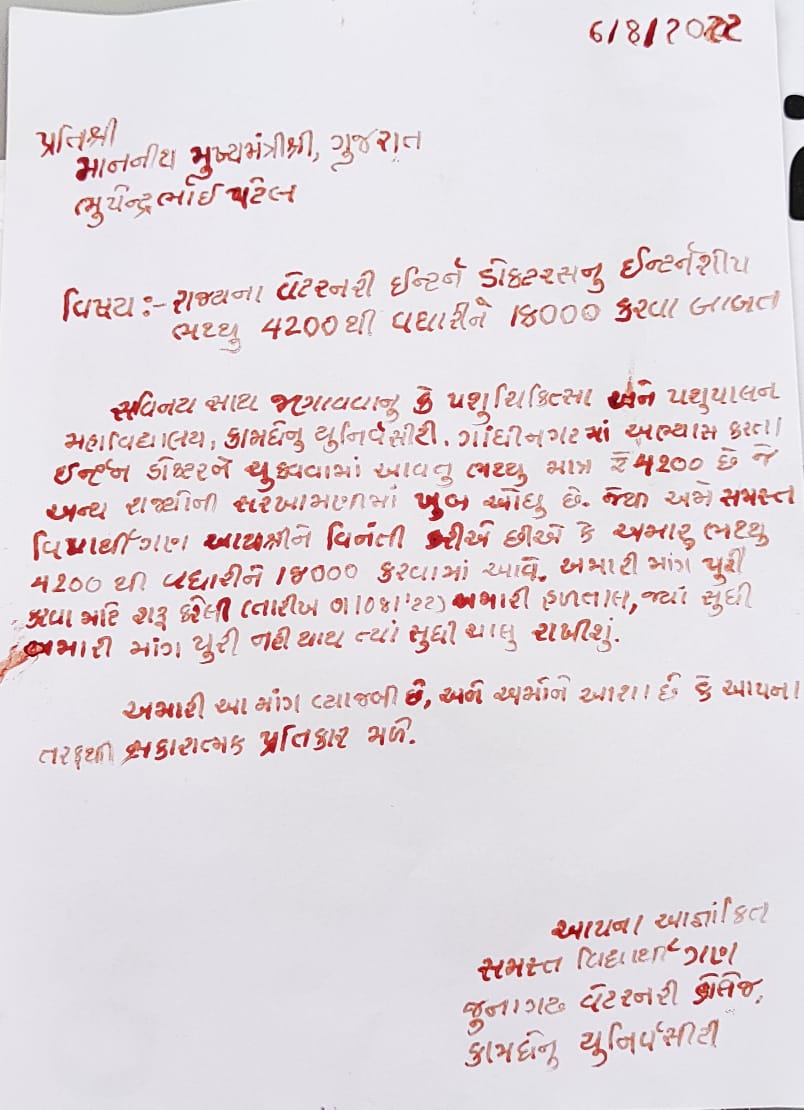 6/8/2022
પ્રતિશ્રી
માનનીય મુખ્યમંત્રીશ્રી, ગુજરાત
ભુપેન્દ્રભાઈ પટેલ
વિષય :- રાજ્યના વેટરનરી ઈન્ટર્ન ડોકટરસનુ ઈન્ટર્નશીપ
ભથ્થુ 4200 થી વધારીને 18000 કરવા બાબત
સવિનય સાથ જણાવવાનુ કે પશુચિકિત્સા અને પશુપાલન
મહાવિદ્યાલય, કામધેનુ યુનિર્વસીટી, ગાંધીનગરમાં અભ્યાસ કરતા
ઈન્ટર્ન ડોક્ટરને ચુકવવામાં આવતુ ભથ્થુ માત્ર ₹4200 છે જે
અન્ય રાજ્યોની સરખામણીમાં ખુબ ઓછુ છે. જેથી અમે સમસ્ત
વિદ્યાર્થીગણ આપશ્રીને વિનંતી કરીએ છીએ કે અમારુ ભથ્થુ
4200 થી વધારીને 18000 કરવામાં આવે. અમારી માંગ પુરી
કરવા માટે શરૂ કરેલી (તારીખ 01/08/'22) અમારી હળતાલ, જ્યાં સુધી
અમારી માંગ પુરી નહી થાય ત્યાં સુધી ચાલુ રાખીશું.
અમારી આ માંગ વ્યાજબી છે, અને અમોને આશા છે કે આપના
તરફથી સકારાત્મક પ્રતિકાર મળે.
આપના આજ્ઞાંકિત
સમસ્ત વિદ્યાર્થી ગણ
જુનાગઢ વેટરનરી કોલેજ,
કામધેનુ યુનિર્વસીટી